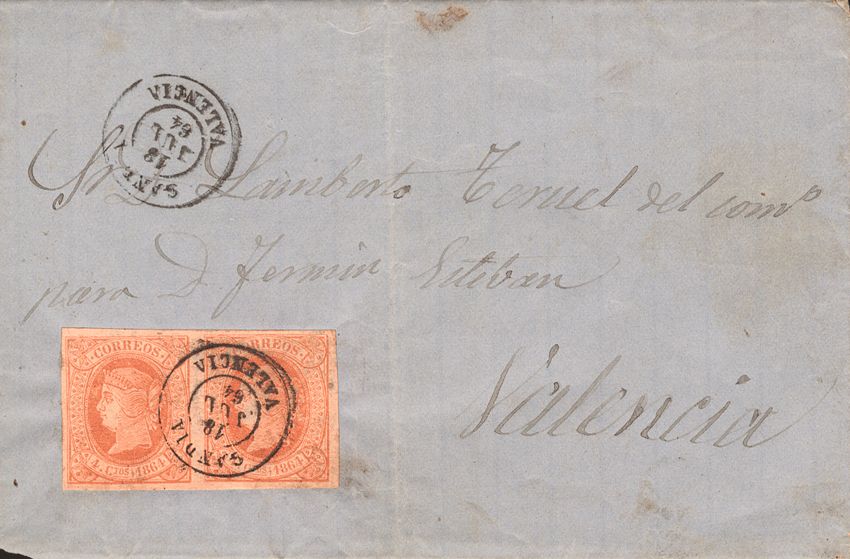 GANDIA
18
JUL
64
VALENCIA
Sr Lamberto Teruel del comº
para D. Fermin Esteban
Valencia
CORREOS
4. Cᵗᵒˢ 1864
CORREOS
1864
GANDIA
18
JUL
64
VALENCIA